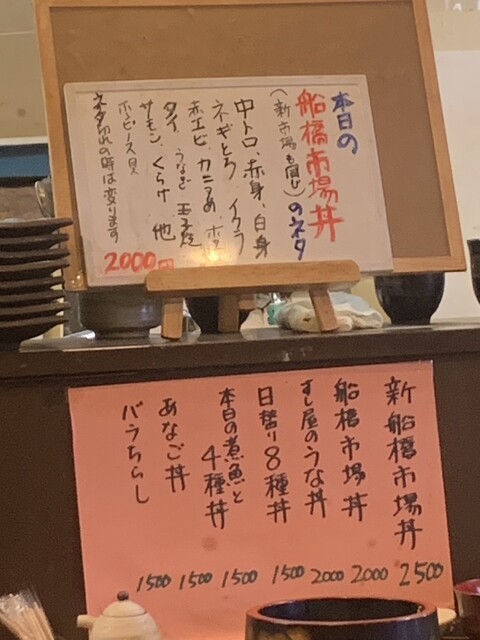 本日の
船橋市場丼
(新市場も同じ)のネタ
中トロ、赤身、白身
ネギとろ イクラ
赤エビ カニつめ ホタ
タイ、うなぎ 玉子焼
サーモン、くらげ 他
ホッピース貝
ネタ切れの時は変ります
2000円
新船橋市場丼 2500
船橋市場丼 2000
すし屋のうな丼 2000
日替り8種丼 1500
本日の煮魚と4種丼 1500
あなご丼 1500
バラちらし 1500